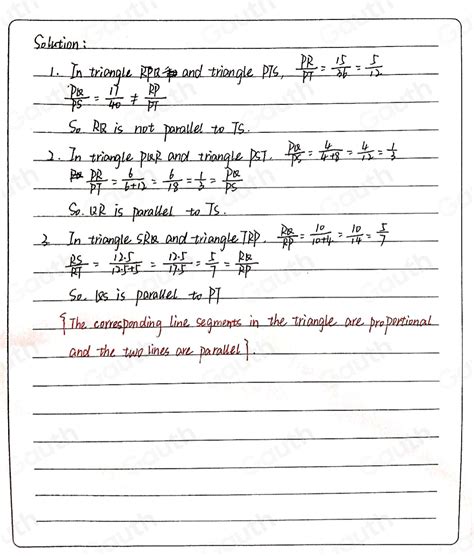 Solution:
1. In triangle RPQ and triangle PTS, PR/PT = 15/36 = 5/12
PQ/PS = 17/40 ≠ RP/PT
So RQ is not parallel to TS.
2. In triangle PQR and triangle PST, PQ/PS = 4/4+8 = 4/12 = 1/3
PR/PT = 6/6+12 = 6/18 = 1/3 = PQ/PS
So. QR is parallel to TS.
3. In triangle SRQ and triangle TRP, RQ/RP = 10/10+4 = 10/14 = 5/7
RS/RT = 12.5/12.5+5 = 12.5/17.5 = 5/7 = RQ/RP
So. QS is parallel to PT
{The corresponding line segments in the triangle are proportional
and the two lines are parallel}.
Gauth